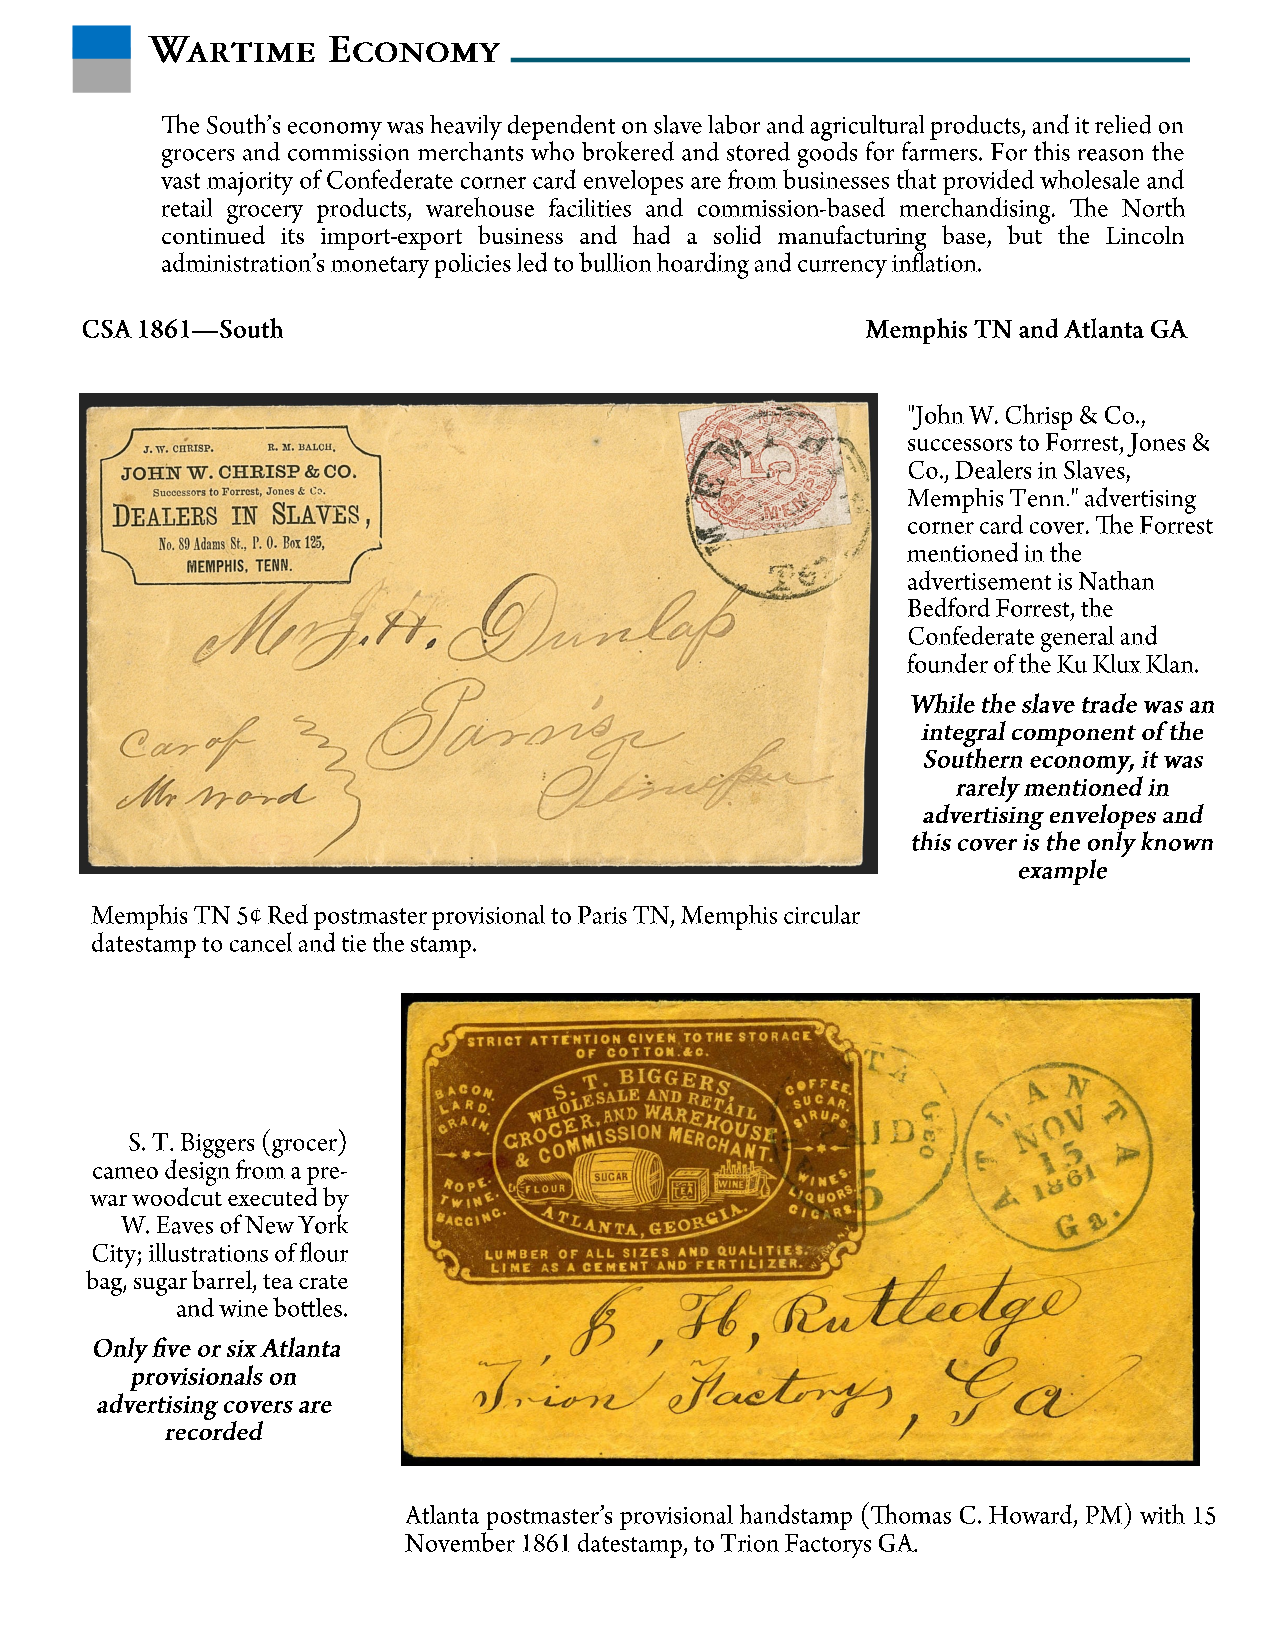 WARTIME ECONOMY
The South's economy was heavily dependent on slave labor and agricultural products, and it relied on
grocers and commission merchants who brokered and stored goods for farmers. For this reason the
vast majority of Confederate corner card envelopes are from businesses that provided wholesale and
retail grocery products, warehouse facilities and commission-based merchandising. The North
continued its import-export business and had a solid manufacturing base, but the Lincoln
administration's monetary policies led to bullion hoarding and currency inflation.
CSA 1861—South
Memphis TN and Atlanta GA
J. W. CHRISP. R. M. BALCH,
JOHN W. CHRISP & CO.
Successors to Forrest, Jones & Co.
DEALERS IN SLAVES,
No. 89 Adams St., P. O. Box 125,
MEMPHIS, TENN.
MEMPH
5
MEMPHIS
Mr J. H. Dunlap
Parris
Car of
Mr Ward
"John W. Chrisp & Co.,
successors to Forrest, Jones &
Co., Dealers in Slaves,
Memphis Tenn." advertising
corner card cover. The Forrest
mentioned in the
advertisement is Nathan
Bedford Forrest, the
Confederate general and
founder of the Ku Klux Klan.
While the slave trade was an
integral component of the
Southern economy, it was
rarely mentioned in
advertising envelopes and
this cover is the only known
example
Memphis TN 5¢ Red postmaster provisional to Paris TN, Memphis circular
datestamp to cancel and tie the stamp.
STRICT ATTENTION GIVEN TO THE STORAGE
OF COTTON.&C.
BACON.
LARD.
GRAIN.
ROPE.
TWINE.
BAGGING.
S. T. BIGGERS,
WHOLESALE AND RETAIL
GROCER, AND WAREHOUSE
& COMMISSION MERCHANT.
FLOUR
SUGAR
TEA
WINE
ATLANTA, GEORGIA.
COFFEE.
SUGAR.
SIRUPS.
WINES.
LIQUORS.
CIGARS.
LUMBER OF ALL SIZES AND QUALITIES.
LIME AS A CEMENT AND FERTILIZER.
TA Geo
PAID
5
ATLANTA
NOV
15
1861
Ga.
J, H, Rutledge
Trion Factorys, Ga
S. T. Biggers (grocer)
cameo design from a pre-
war woodcut executed by
W. Eaves of New York
City; illustrations of flour
bag, sugar barrel, tea crate
and wine bottles.
Only five or six Atlanta
provisionals on
advertising covers are
recorded
Atlanta postmaster's provisional handstamp (Thomas C. Howard, PM) with 15
November 1861 datestamp, to Trion Factorys GA.